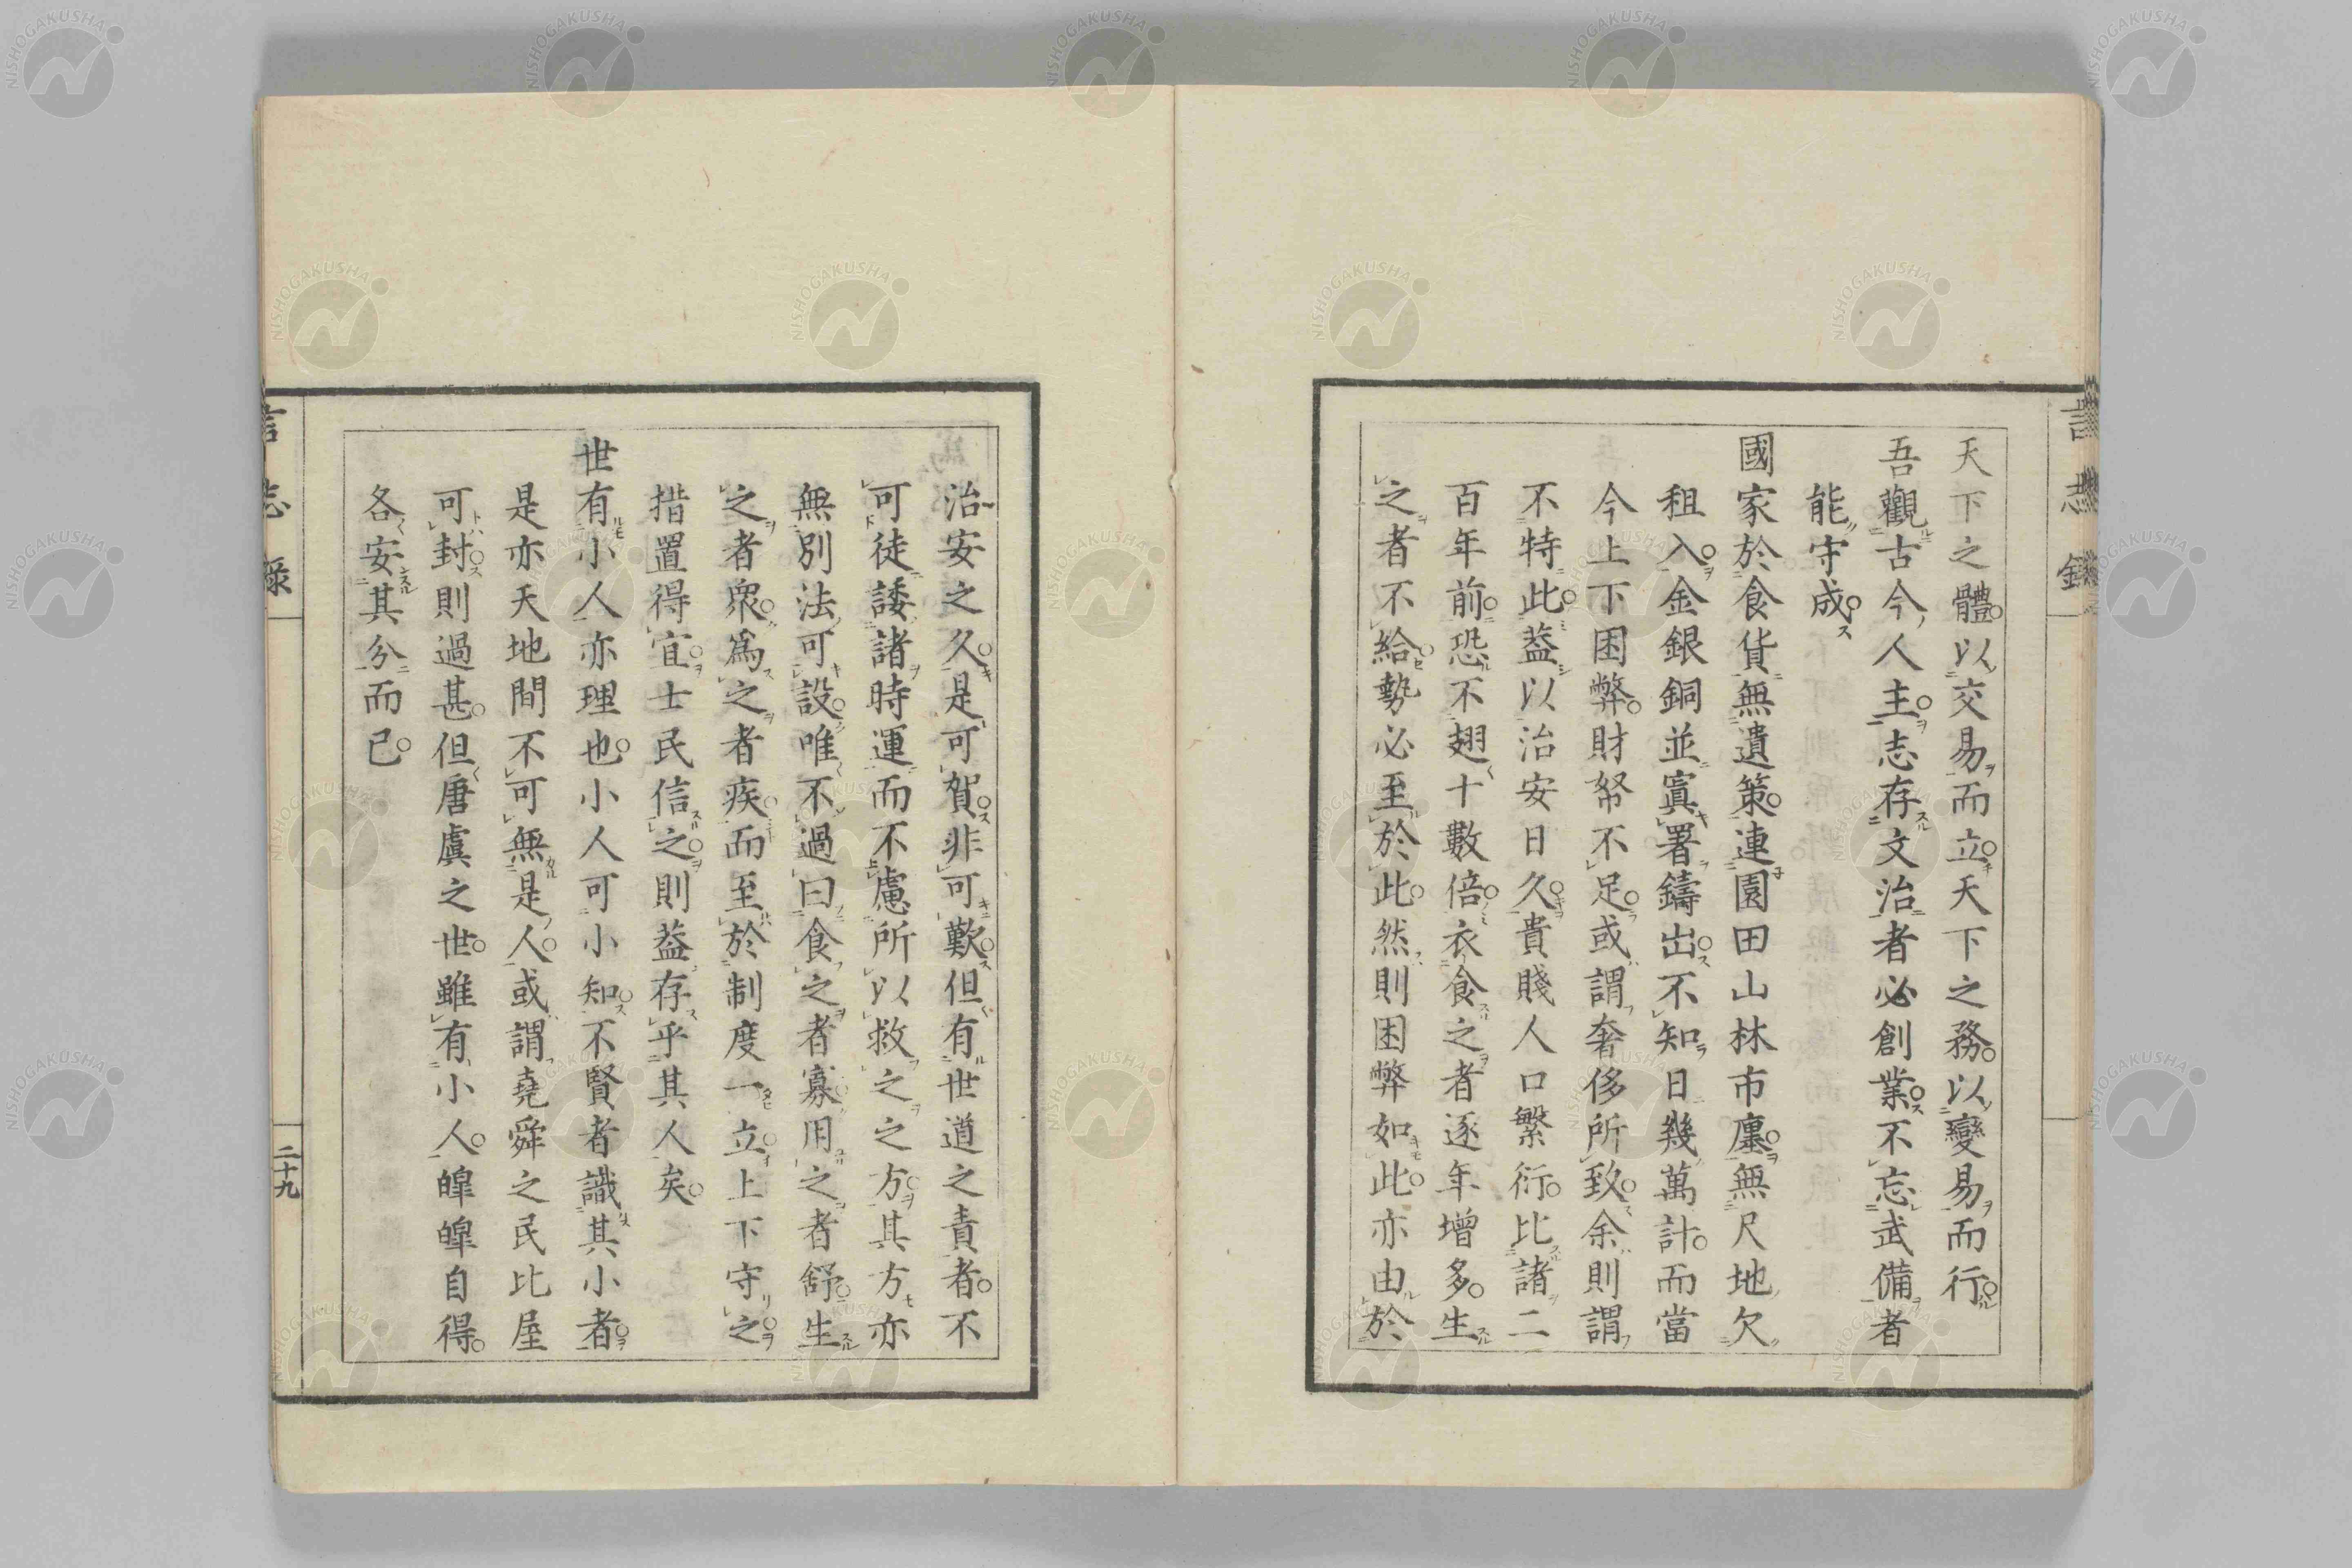 天下之體。以交易而立。天下之務。以變易而行。
吾觀古今人主。志存文治者必創業。不忘武備者
能守成。
國家於食貨無遺策。連園田山林市廛。無尺地欠
租入。金銀銅並寘署鑄出。不知日幾萬計。而當
今上下困弊。財帑不足。或謂奢侈所致。余則謂
不特此。葢以治安日久。貴賤人口繁衍。比諸二
百年前。恐不翅十數倍。衣食之者逐年增多。生
之者不給。勢必至於此。然則困弊如此。亦由於
治安之久。是可賀。非可歎。但有世道之責者。不
可徒諉諸時運。而不慮所以救之之方。其方亦
無別法可設。唯不過曰食之者寡。用之者舒。生
之者衆。爲之者疾。而至於制度一立。上下守之。
措置得宜。士民信之。則葢存乎其人矣。
世有小人亦理也。小人可小知。不賢者識其小者。
是亦天地間不可無是人。或謂堯舜之民比屋
可封。則過甚。但唐虞之世。雖有小人。皥皥自得。
各安其分而已。
言志錄
二十九
NISHOGAKUSHA